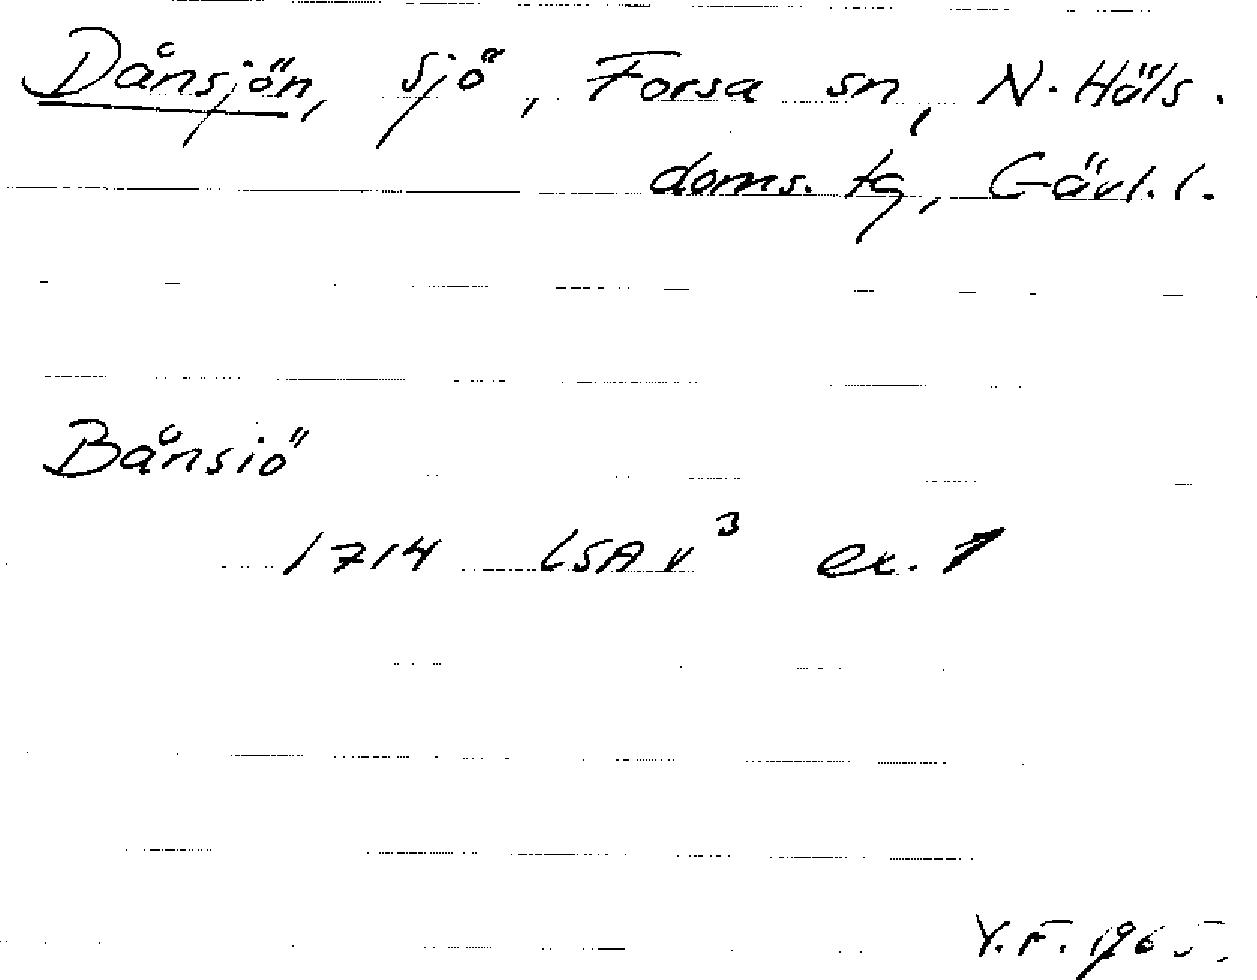 Dånsjön, sjö, Forsa sn, N. Häls.
doms. tg, Gävl. l.
Bånsiö
1714 LSA v³ ex. 1
Y.F. 1965.